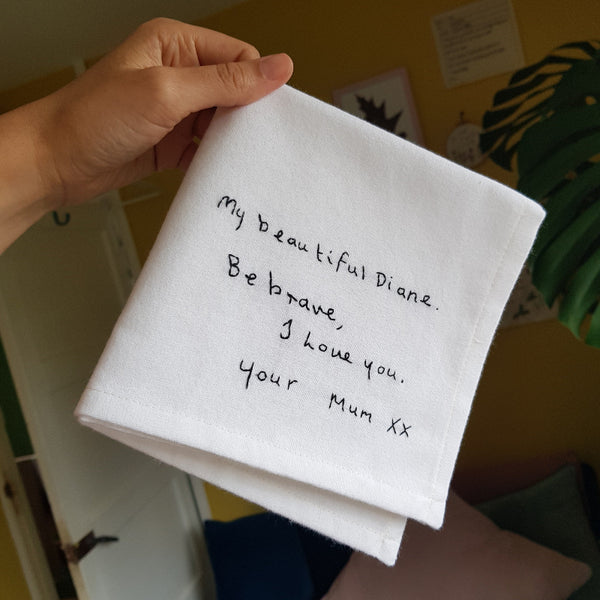 My beautiful Diane.
Be brave,
I love you.
Your Mum XX